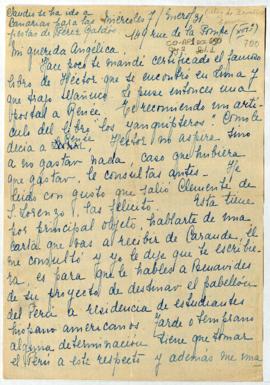 Candes te ha ido a
Canarias para las Miércoles 7 Enero 31
fiestas de Pérez Galdós 149 rue de la Pompe (XVIe)
Mi querida Angélica.
Hace poco te mandé certificado el famoso
libro de Héctor que se encontró en Lima y
que trajo Mauricio. Te puse entonces una
postal a Renée. Te recomiendo un artí-
culo del libro "Los yanquipteros". Como le
decía a Renée Héctor no aspira sino
a no gastar nada; caso que hubiera
que gastar. le consultas antes. He
leído con gusto que salió Clemente de
S. Lorenzo. Las felicito. Esta tiene
por principal objeto, hablarte de una
carta que vas a recibir de Carande. El
me consultó y yo le dije que te escribie-
ra, es para que le hables a Benavides
de su proyecto de destinar el pabellón
del Perú a residencia de estudiantes
hispano americanos. Tarde o temprano
alguna determinación tiene que tomar
el Perú a este respecto y además me una